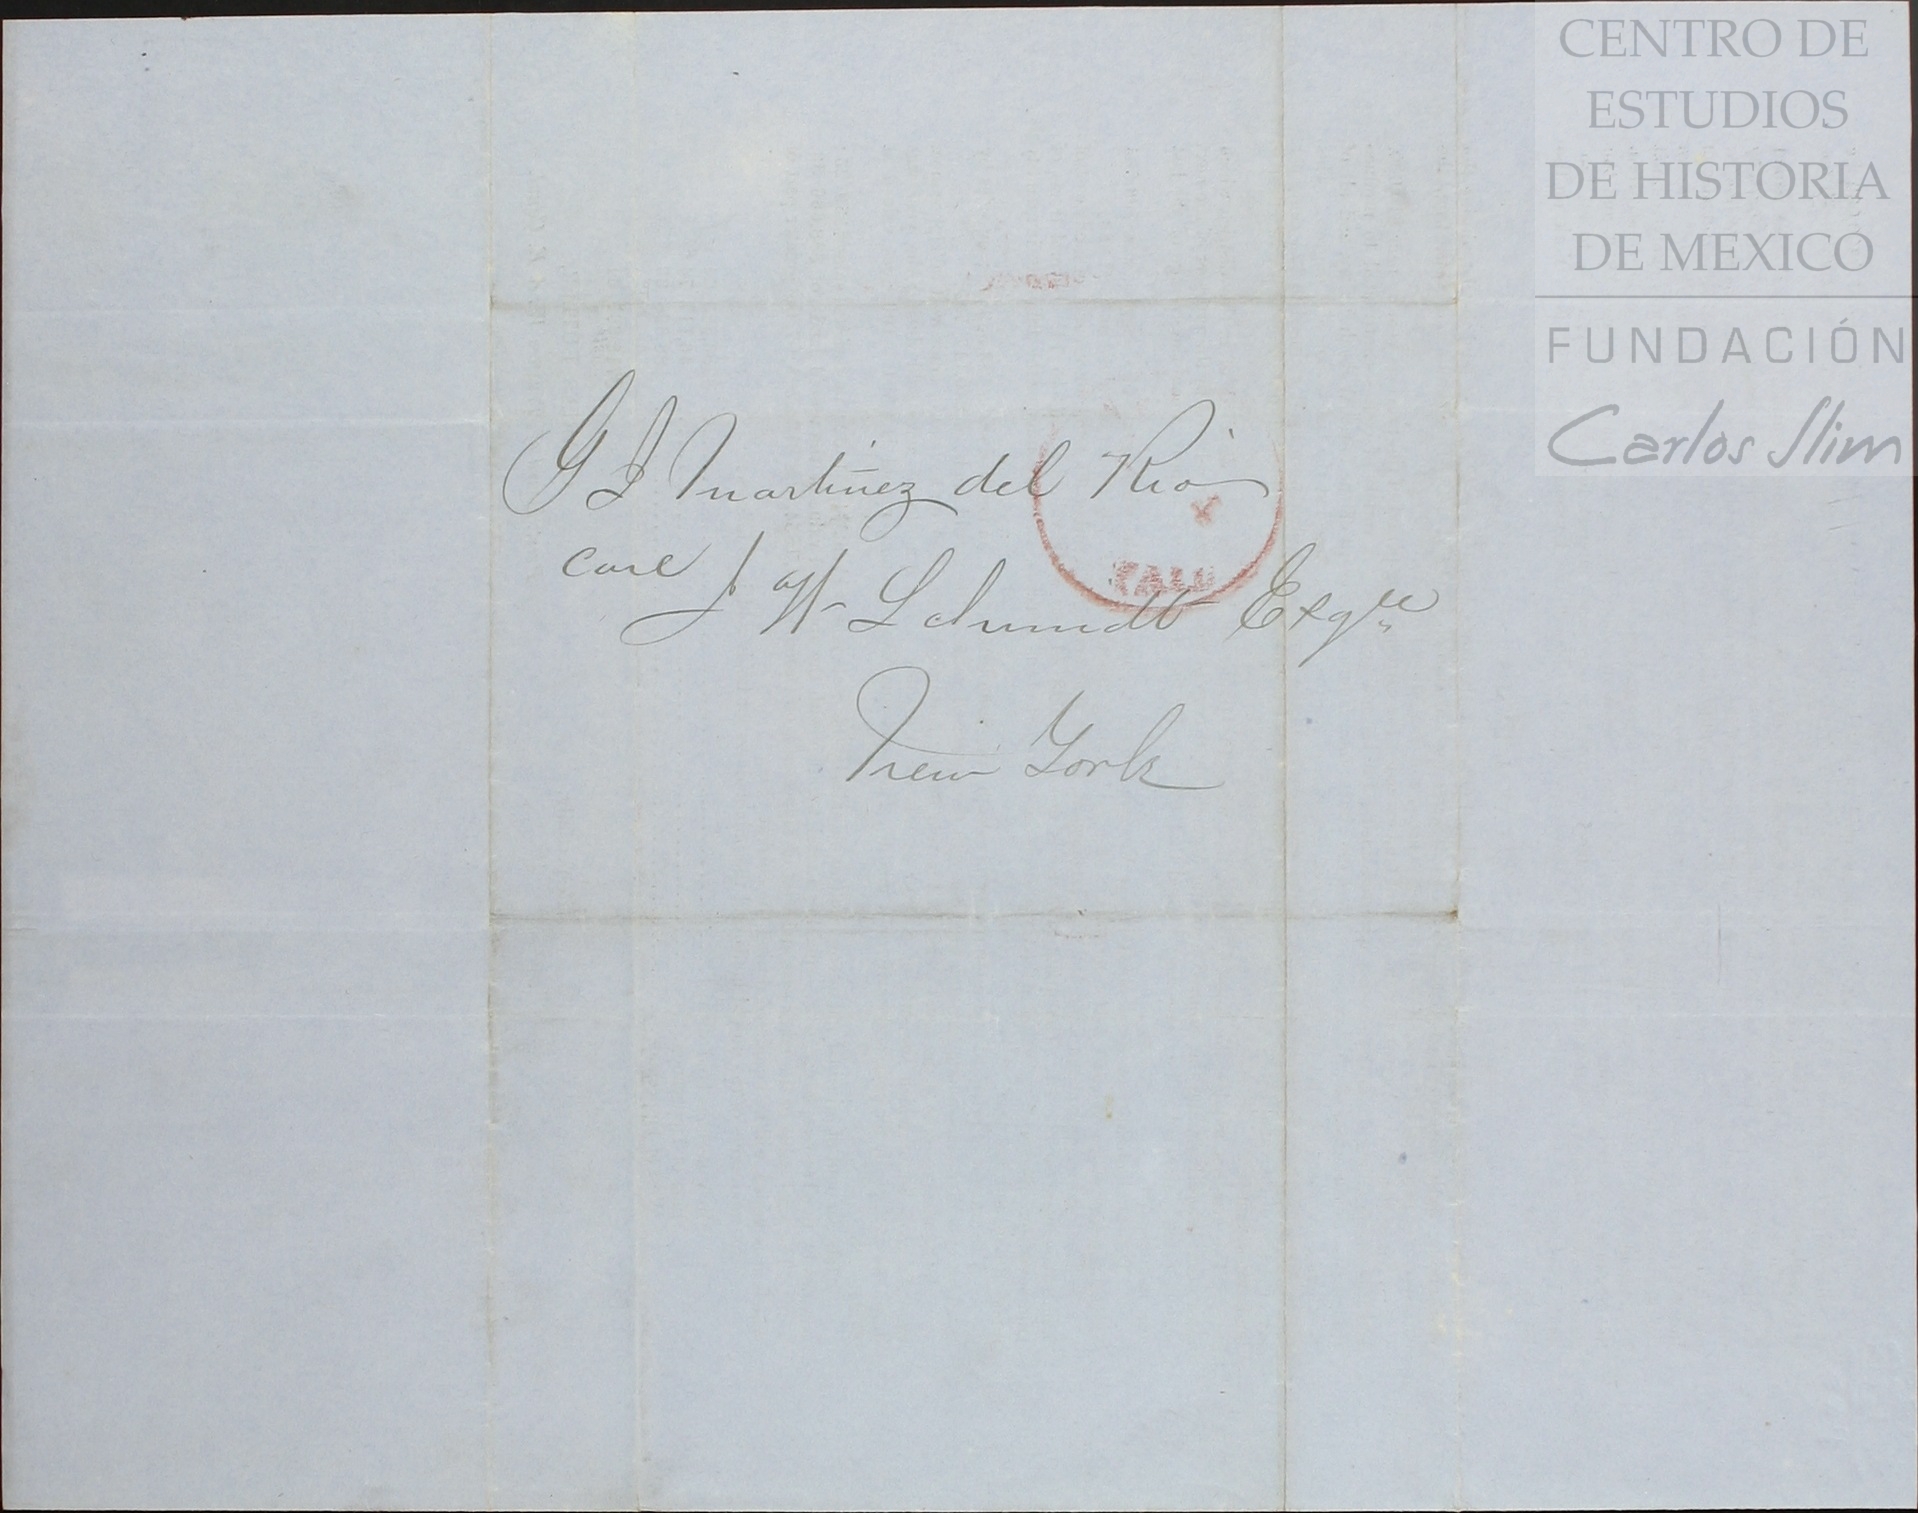 G J Martinez del Rio
care J W Schmidt Esqre
New York
PAID
CENTRO DE
ESTUDIOS
DE HISTORIA
DE MEXICO
FUNDACIÓN
Carlos Slim